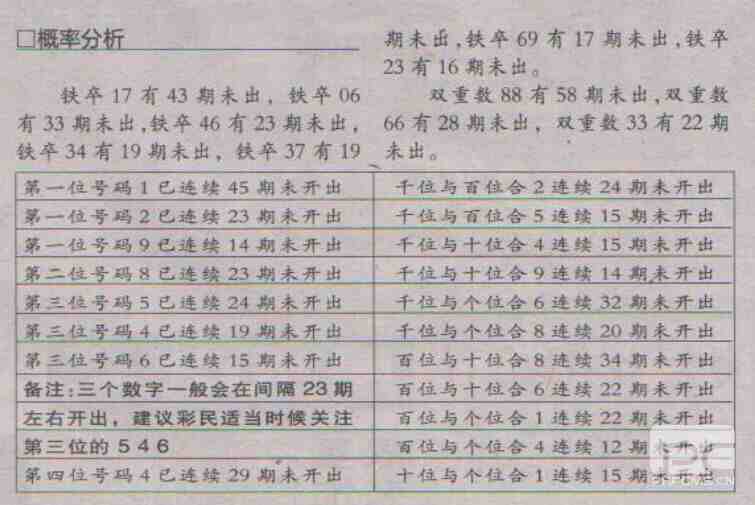 □概率分析
铁卒 17 有 43 期未出，铁卒 06
有 33 期未出,铁卒 46 有 23 期未出,
铁卒 34 有 19 期未出，铁卒 37 有 19
期未出,铁卒 69 有 17 期未出,铁卒
23 有 16 期未出。
双重数 88 有 58 期未出,双重数
66 有 28 期未出，双重数 33 有 22 期
未出。
第一位号码 1 已连续 45 期未开出
第一位号码 2 已连续 23 期未开出
第一位号码 9 已连续 14 期未开出
第二位号码 8 已连续 23 期未开出
第三位号码 5 已连续 24 期未开出
第三位号码 4 已连续 19 期未开出
第三位号码 6 已连续 15 期未开出
备注:三个数字一般会在间隔 23 期
左右开出，建议彩民适当时候关注
第三位的 5 4 6
第四位号码 4 已连续 29 期未开出
千位与百位合 2 连续 24 期未开出
千位与百位合 5 连续 15 期未开出
千位与十位合 4 连续 15 期未开出
千位与十位合 9 连续 14 期未开出
千位与个位合 6 连续 32 期未开出
千位与个位合 8 连续 20 期未开出
百位与十位合 8 连续 34 期未开出
百位与十位合 6 连续 22 期未开出
百位与个位合 1 连续 22 期未开出
百位与个位合 4 连续 12 期未开出
十位与个位合 1 连续 15 期未开出